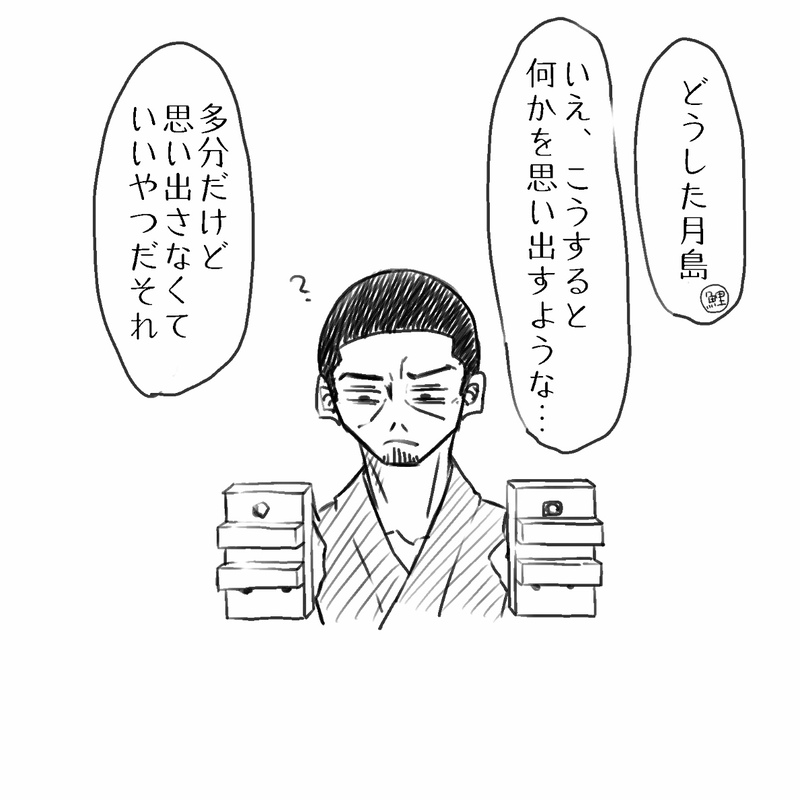 どうした月島
鯉
いえ、こうすると
何かを思い出すような…
?
多分だけど
思い出さなくて
いいやつだそれ